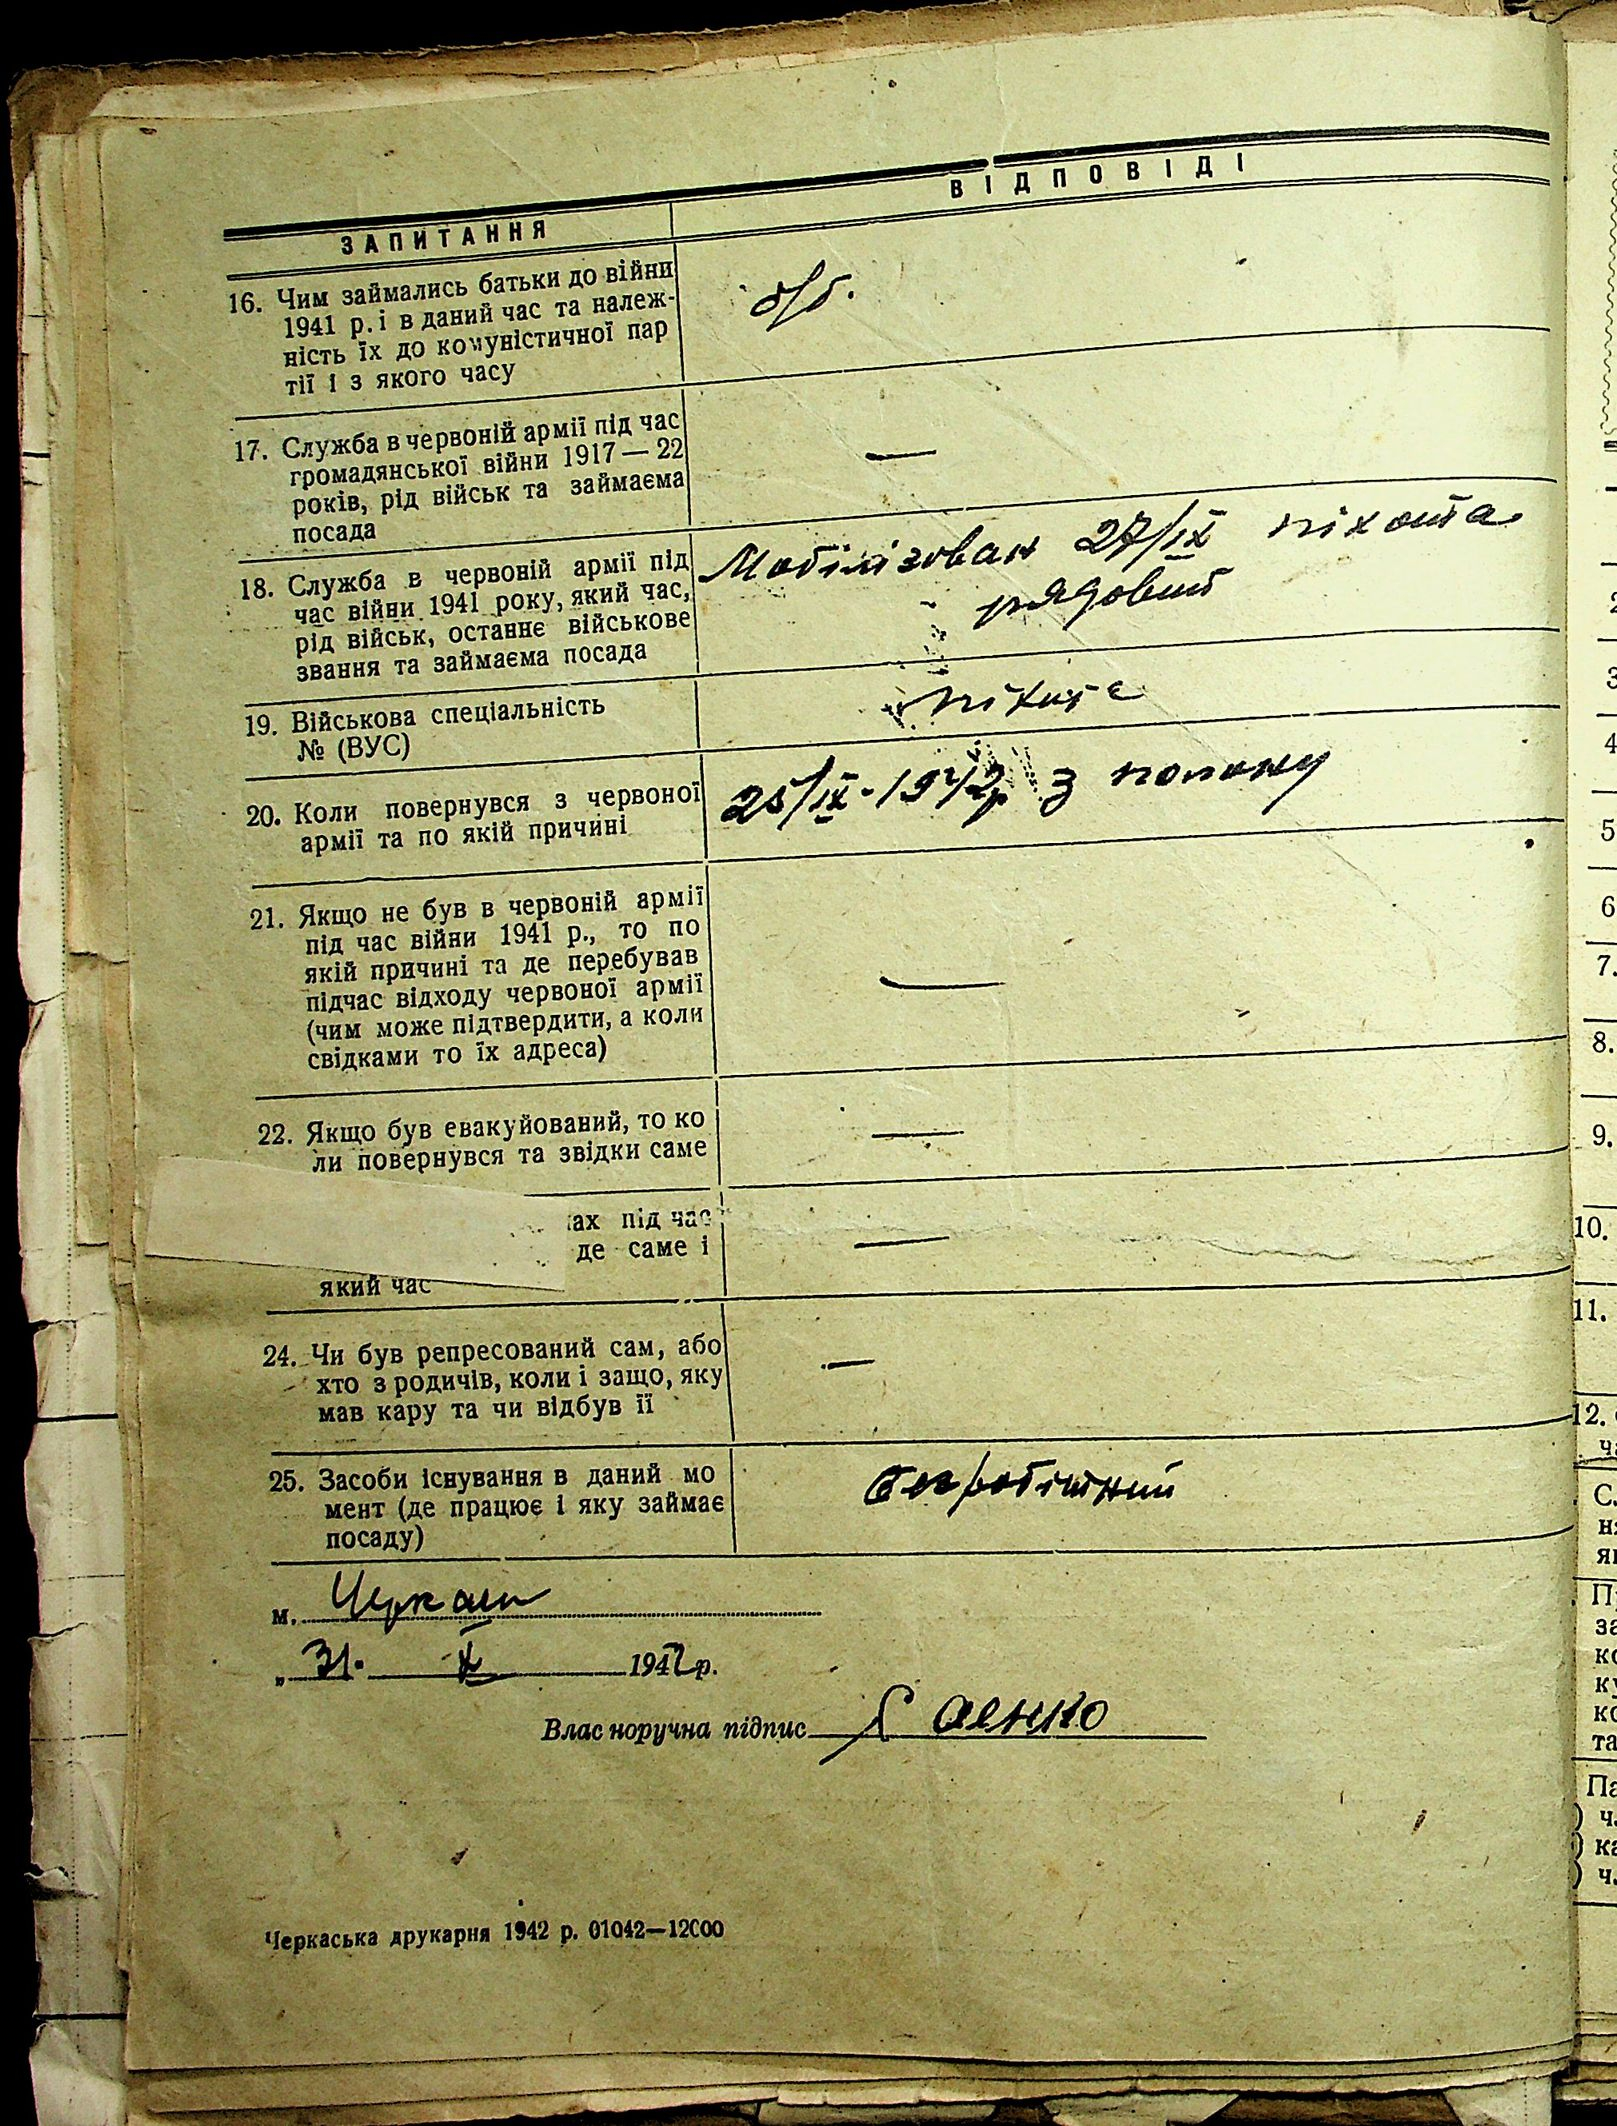 ЗАПИТАННЯ
ВІДПОВІДІ
16. Чим займались батьки до війни
1941 р. і в даний час та належ-
ність їх до комуністичної пар
тії і з якого часу
б/п.
17. Служба в червоній армії під час
громадянської війни 1917 — 22
років, рід військ та займаєма
посада
—
18. Служба в червоній армії під
час війни 1941 року, який час,
рід військ, останнє військове
звання та займаєма посада
Мобілізован 27/IX піхота
рядовий
19. Військова спеціальність
№ (ВУС)
піхота
20. Коли повернувся з червоної
армії та по якій причині
25/IX-1942р з полону
21. Якщо не був в червоній армії
під час війни 1941 р., то по
якій причині та де перебував
підчас відходу червоної армії
(чим може підтвердити, а коли
свідками то їх адреса)
—
22. Якщо був евакуйований, то ко
ли повернувся та звідки саме
—
ах під час
де саме і
який час
—
24. Чи був репресований сам, або
хто з родичів, коли і защо, яку
мав кару та чи відбув її
—
25. Засоби існування в даний мо
мент (де працює і яку займає
посаду)
безробітний
м. Черкаси
„ 31. X 1942 р.
Власноручна підпис Саенко
Черкаська друкарня 1942 р. 01042—12000
2
3
4
5
6
7.
8.
9.
10.
11.
12.
ч
С.
н
я
П
за
ко
к
ко
та
Па
) ч.
) ка
) ч.